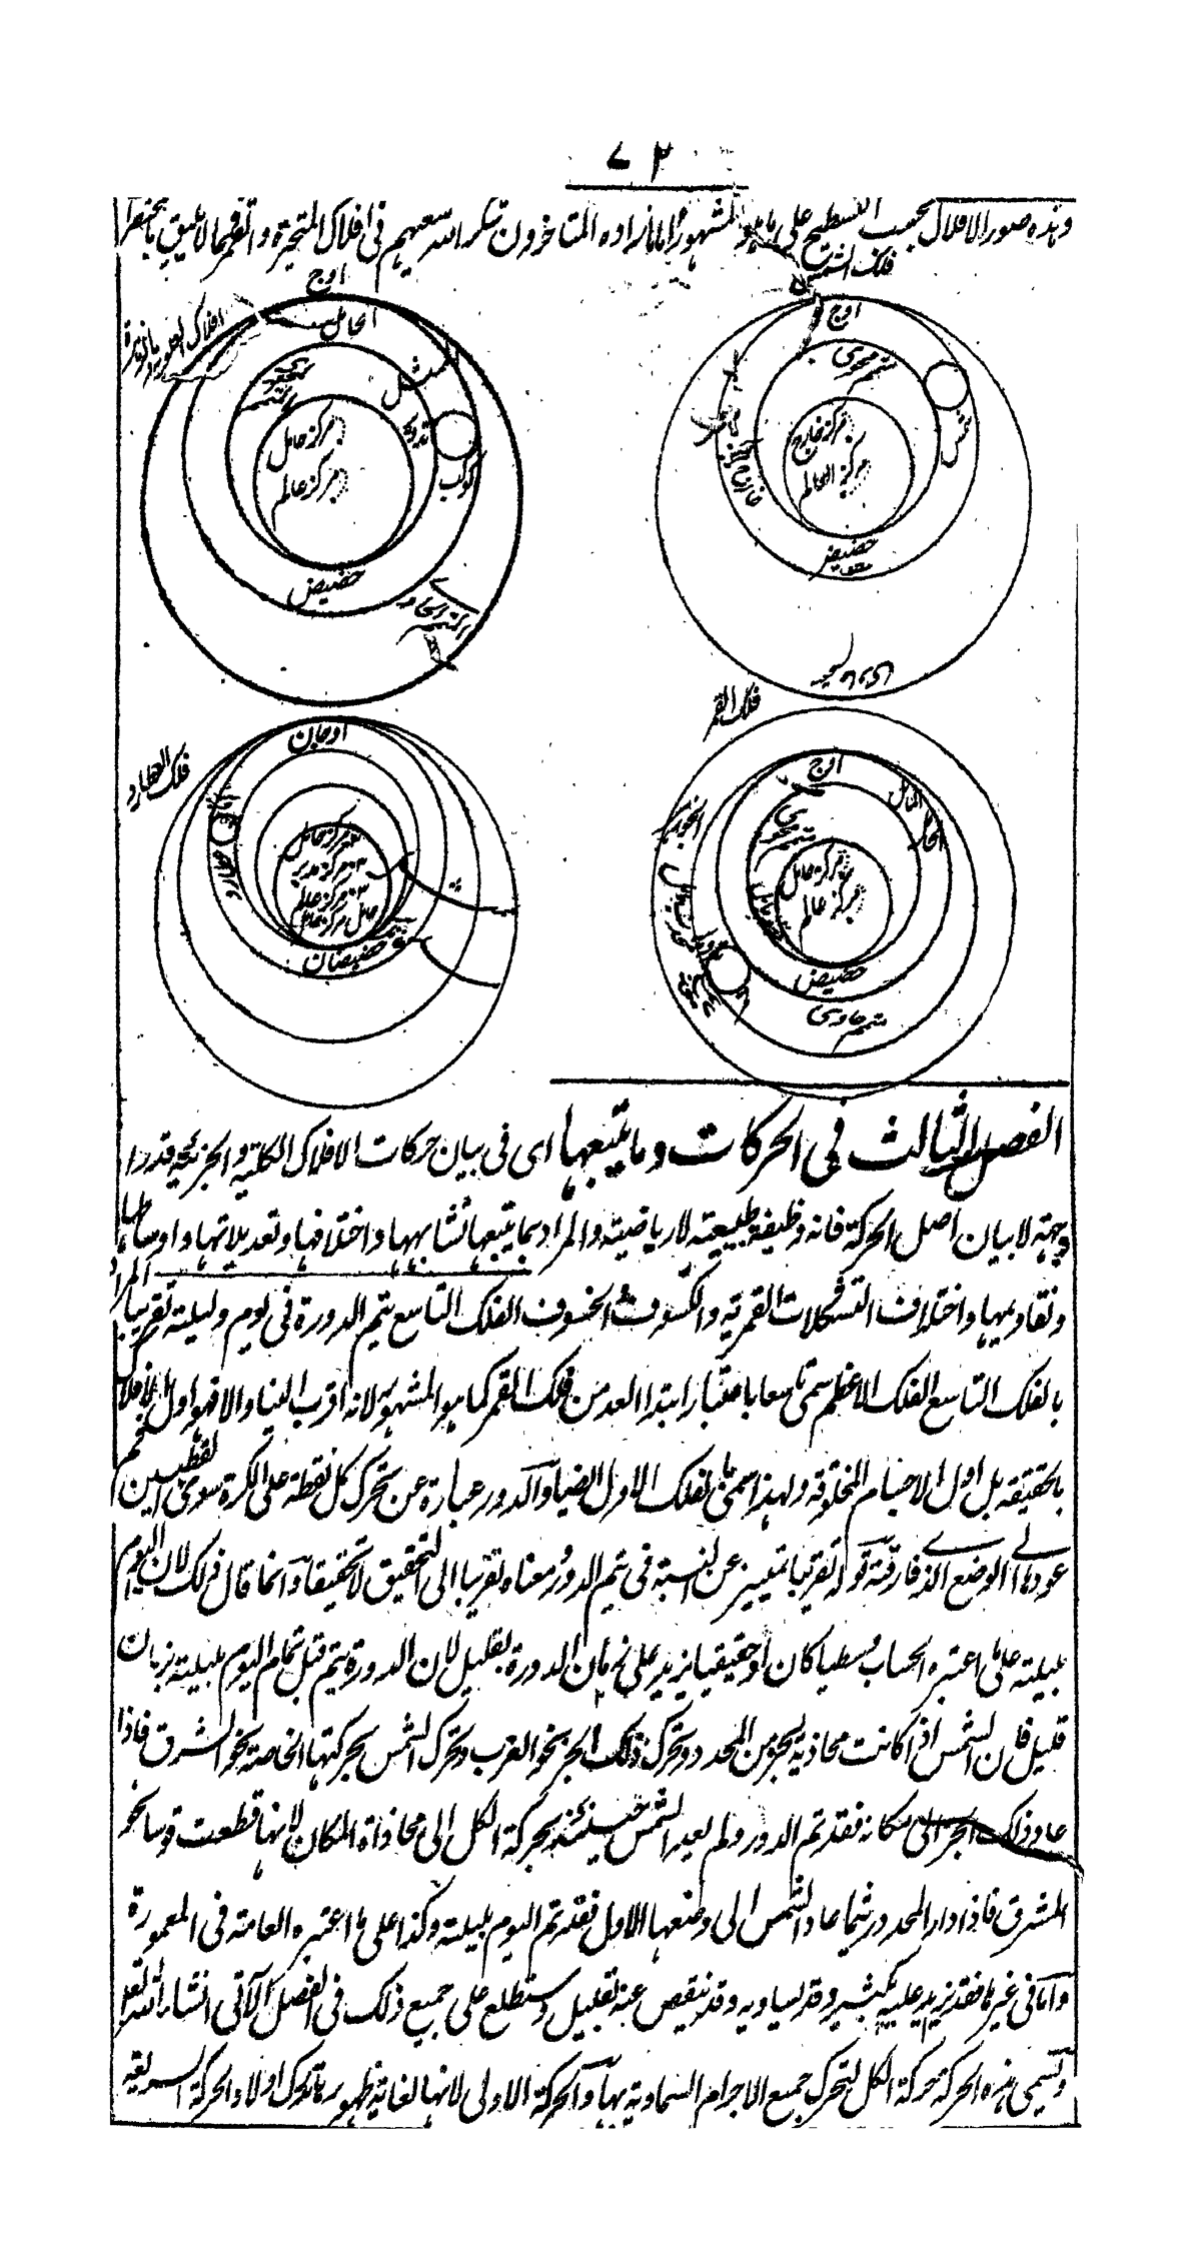 ٧٢
وهذه صور الافلاك بحسب التسطيح على ما هو المشهور واما ما زاده المتاخرون شكر الله سعيهم فى افلاك المتحيرة والقمر فلا يليق
فلك الشمس
اوج
متمم محوى
مركز خارج
مركز العالم
شمس
حضيض
اوج
الحامل
الممثل
مركز حامل
مركز عالم
تدوير
كوكب
حضيض
المتمم الحاوى
فلك القمر
اوج
المائل
الحامل
متمم محوى
مركز حامل
مركز عالم
حضيض
متمم حاوى
فلك العطارد
اوجان
مركز حامل
مركز مدير
مركز عالم
حضيضان
الفصل الثالث فى الحركات وما يتبعها اى فى بيان حركات الافلاك الكلية والجزئية قدرا
وجهة لا بيان اصل الحركة فانه وظيفة طبيعية لا رياضية والمراد بما يتبعها تشابهها واختلافها وتعديلاتها واوساطها
وتقاويمها واختلاف التشكلات القمرية والكسوف والخسوف الفلك التاسع يتم الدورة فى يوم وليلة تقريبا المراد
بالفلك التاسع الفلك الاعظم سمى تاسعا باعتبار ابتداء العد من فلك القمر كما هو المشهور لانه اقرب الينا والا فهو اول الافلاك
بالحقيقة بل اول الاجسام المخلوقة ولهذا سمى بالفلك الاول ايضا والدور عبارة عن تحرك كل نقطة على الكرة سوى القطبين الى حين
عودها الى الوضع الذى فارقته قوله تقريبا تمييز عن النسبة فى يتم الدور ومعناه تقريبا الى التحقيق لا تحقيقا وانما قال ذلك لان اليوم
بليلته على ما اعتبره الحساب وسطيا كان او حقيقيا يزيد على زمان الدورة بقليل لان الدورة يتم قبل تمام اليوم بليلته بزمان
قليل فان الشمس اذا كانت محاذية لجزء من المحدد وتحرك ذلك الجزء نحو الغرب وتحرك الشمس بحركتها الخاصة نحو الشرق فاذا
عاد ذلك الجزء الى مكانه فقد تم الدور ولم يعد الشمس حينئذ بحركة الكل الى محاذاة المكان لانها قطعت قوسا نحو
المشرق فاذا دار المحدد ريثما عاد الشمس الى وضعها الاول فقد تم اليوم بليلته وكذا على ما اعتبره العامة فى المعمورة
واما فى غيرها فقد يزيد عليه بكثير وقد يساويه وقد ينقص عنه بقليل وستطلع على جميع ذلك فى الفصل الآتى انشاء الله تعالى
وتسمى هذه الحركة حركة الكل لتحرك جميع الاجرام السماوية بها والحركة الاولى لانها لغاية ظهورها تدرك اولا والحركة السريعة